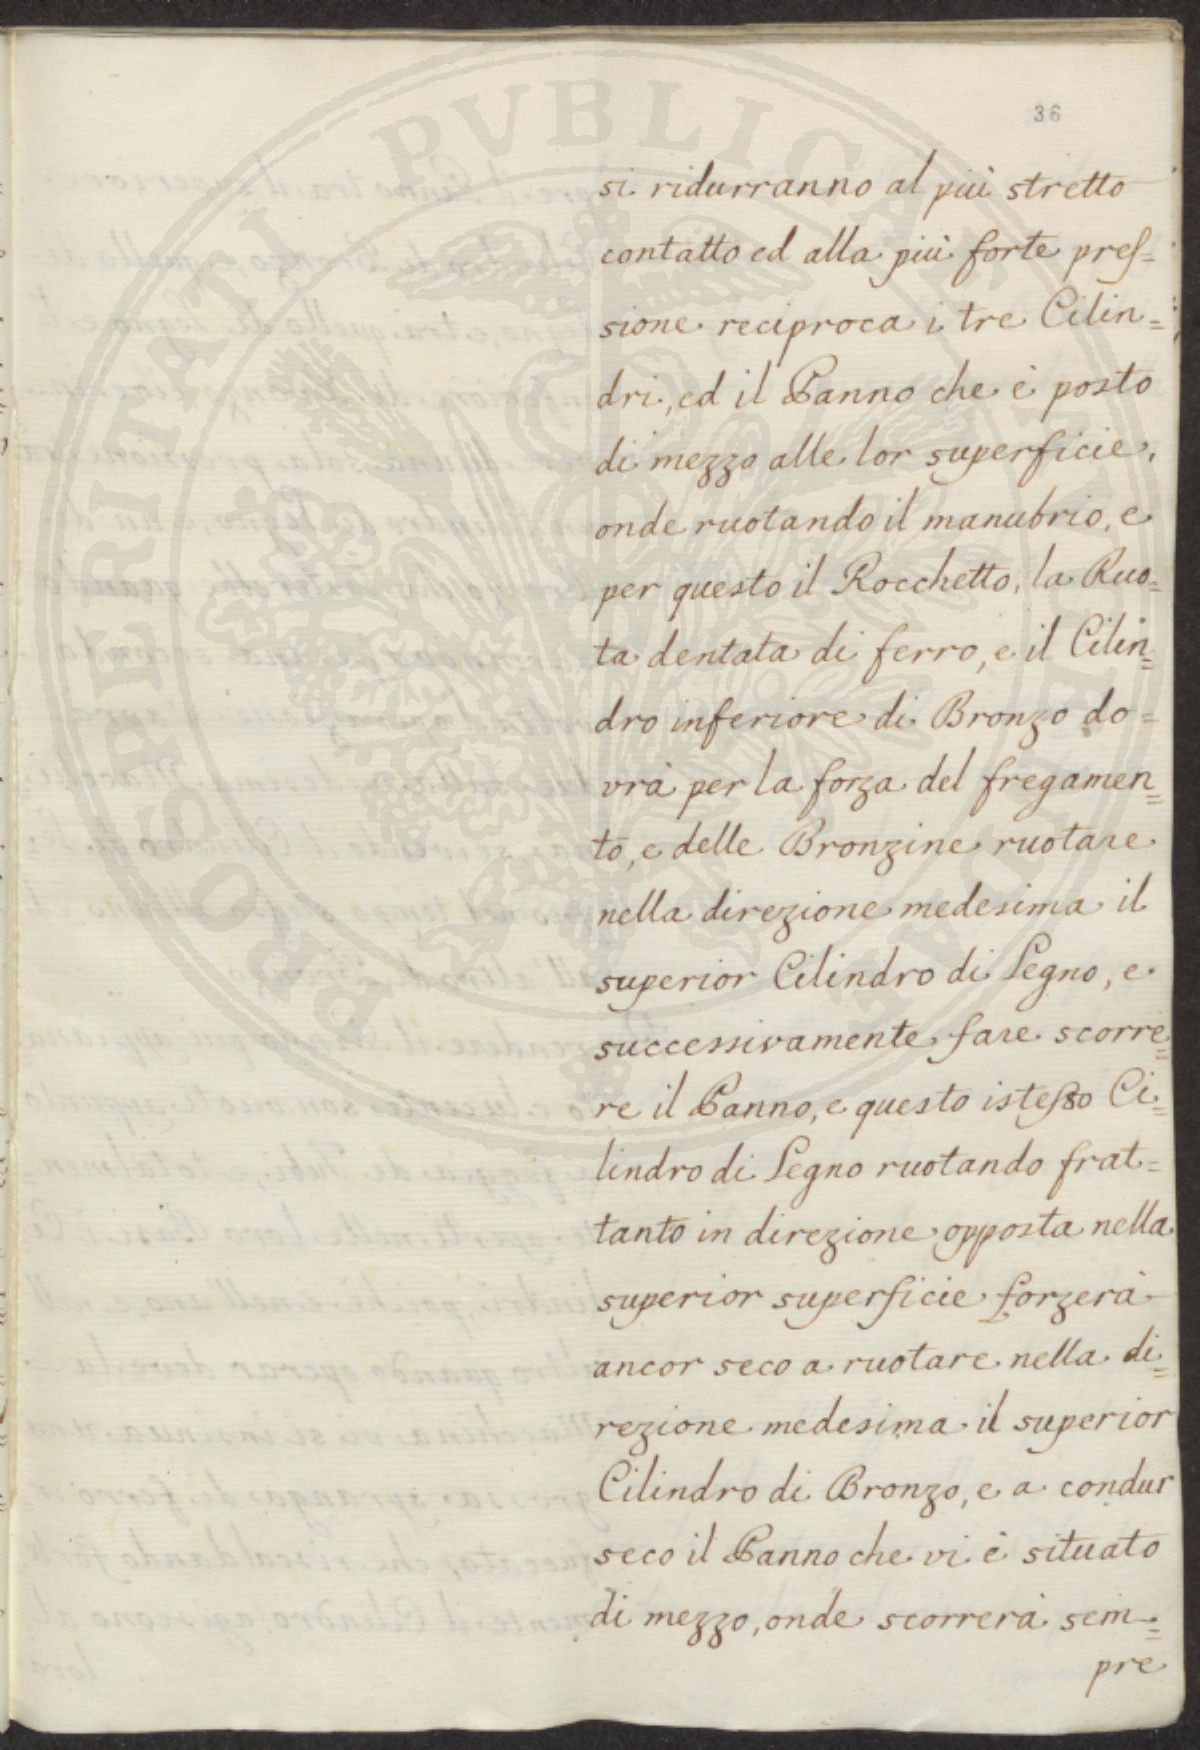 PUBLICAE PROSPERITATI
36
si ridurranno al più stretto
contatto ed alla più forte pres=
sione reciproca i tre Cilin=
dri, ed il Panno che è posto
di mezzo alle lor superficie,
onde ruotando il manubrio, e
per questo il Rocchetto, la Ruo=
ta dentata di ferro, e il Cilin=
dro inferiore di Bronzo do=
vrà per la forza del fregamen=
to, e delle Bronzine ruotare
nella direzione medesima il
superior Cilindro di Legno, e
successivamente fare scorre=
re il Panno, e questo istesso Ci=
lindro di Legno ruotando frat=
tanto in direzione opposta nella
superior superficie forzerà
ancor seco a ruotare nella di=
rezione medesima il superior
Cilindro di Bronzo, e a condur
seco il Panno che vi è situato
di mezzo, onde scorrerà sem=
pre